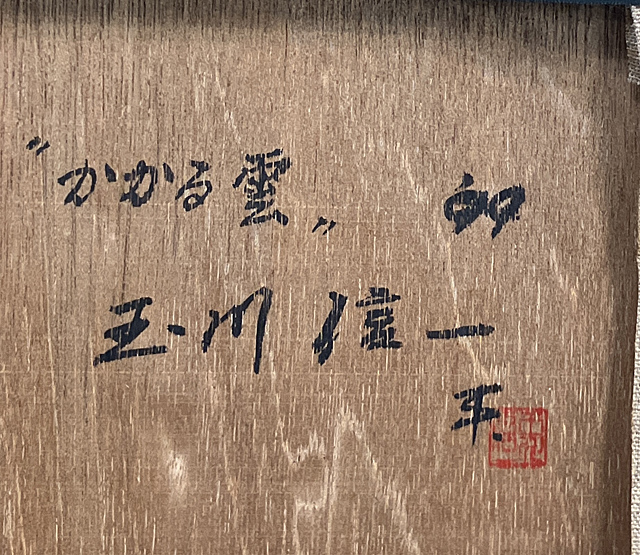 〝かかる雲〟
玉川信一